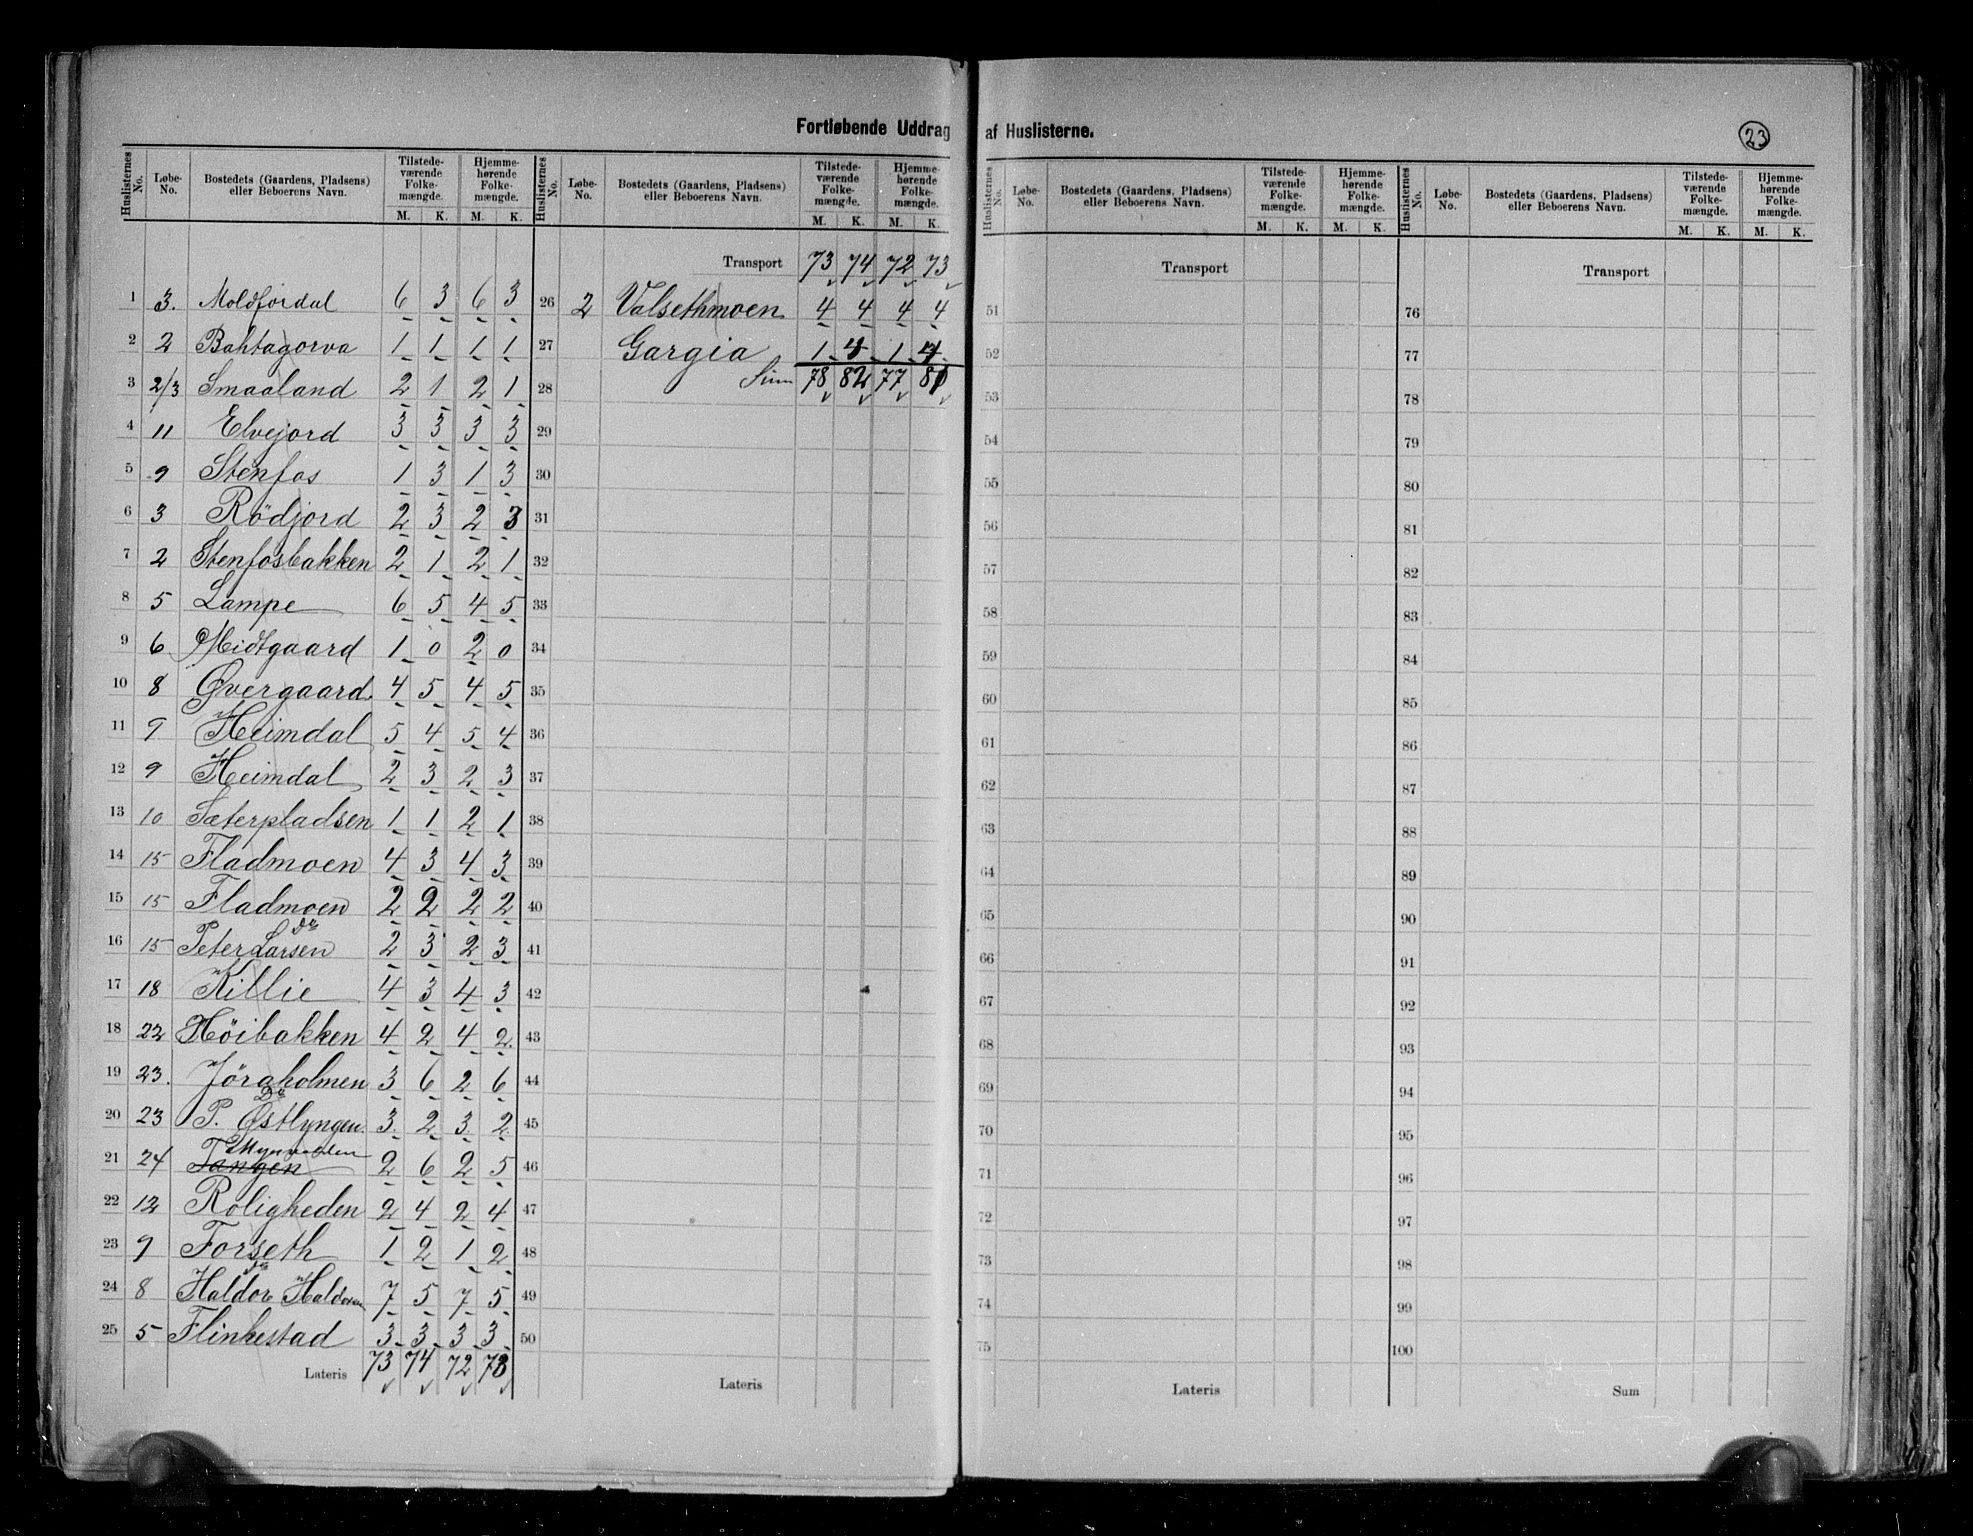 Fortløbende Uddrag af Huslisterne.
23
Huslisternes No. Løbe-No. Bostedets (Gaardens, Pladsens) eller Beboerens Navn. Tilstede-værende Folke-mængde. M. K. Hjemme-hørende Folke-mængde. M. K.
1 3. Moldfordal 6 3 6 3
2 2 Bahtagorva 1 1 1 1
3 2/3 Smaaland 2 1 2 1
4 11 Elvejord 3 3 3 3
5 9 Stenfos 1 3 1 3
6 3 Rödjord 2 3 2 3
7 2 Stenfosbakken 2 1 2 1
8 5 Lampe 6 5 4 5
9 6 Midtgaard 1 0 2 0
10 8 Øvergaard 4 5 4 5
11 9 Heimdal 5 4 5 4
12 9 Heimdal 2 3 2 3
13 10 Sæterpladsen 1 1 2 1
14 15 Fladmoen 4 3 4 3
15 15 Fladmoen 2 2 2 2
do
16 15 Peter Larsen 2 3 2 3
17 18 Killie 4 3 4 3
18 22 Höibakken 4 2 4 2
19 23. Jörgholmen 3 6 2 6
Do
20 23 P. Østlyngen 3 2 3 2
21 24 Tangen 2 6 2 5
22 12 Roligheden 2 4 2 4
23 9 Forseth 1 2 1 2
do
24 8 Haldor Haldorsen 7 5 7 5
25 5 Flinkestad 3 3 3 3
Lateris 73 74 72 73
Huslisternes No. Løbe-No. Bostedets (Gaardens, Pladsens) eller Beboerens Navn. Tilstede-værende Folke-mængde. M. K. Hjemme-hørende Folke-mængde. M. K.
Transport 73 74 72 73
26 2 Valsethmoen 4 4 4 4
27 Gargia 1 4 1 4
28 Sum 78 82 77 81
29
30
31
32
33
34
35
36
37
38
39
40
41
42
43
44
45
46
47
48
49
50
Lateris
Huslisternes No. Løbe-No. Bostedets (Gaardens, Pladsens) eller Beboerens Navn. Tilstede-værende Folke-mængde. M. K. Hjemme-hørende Folke-mængde. M. K.
Transport
51
52
53
54
55
56
57
58
59
60
61
62
63
64
65
66
67
68
69
70
71
72
73
74
75
Lateris
Huslisternes No. Løbe-No. Bostedets (Gaardens, Pladsens) eller Beboerens Navn. Tilstede-værende Folke-mængde. M. K. Hjemme-hørende Folke-mængde. M. K.
Transport
76
77
78
79
80
81
82
83
84
85
86
87
88
89
90
91
92
93
94
95
96
97
98
99
100
Sum